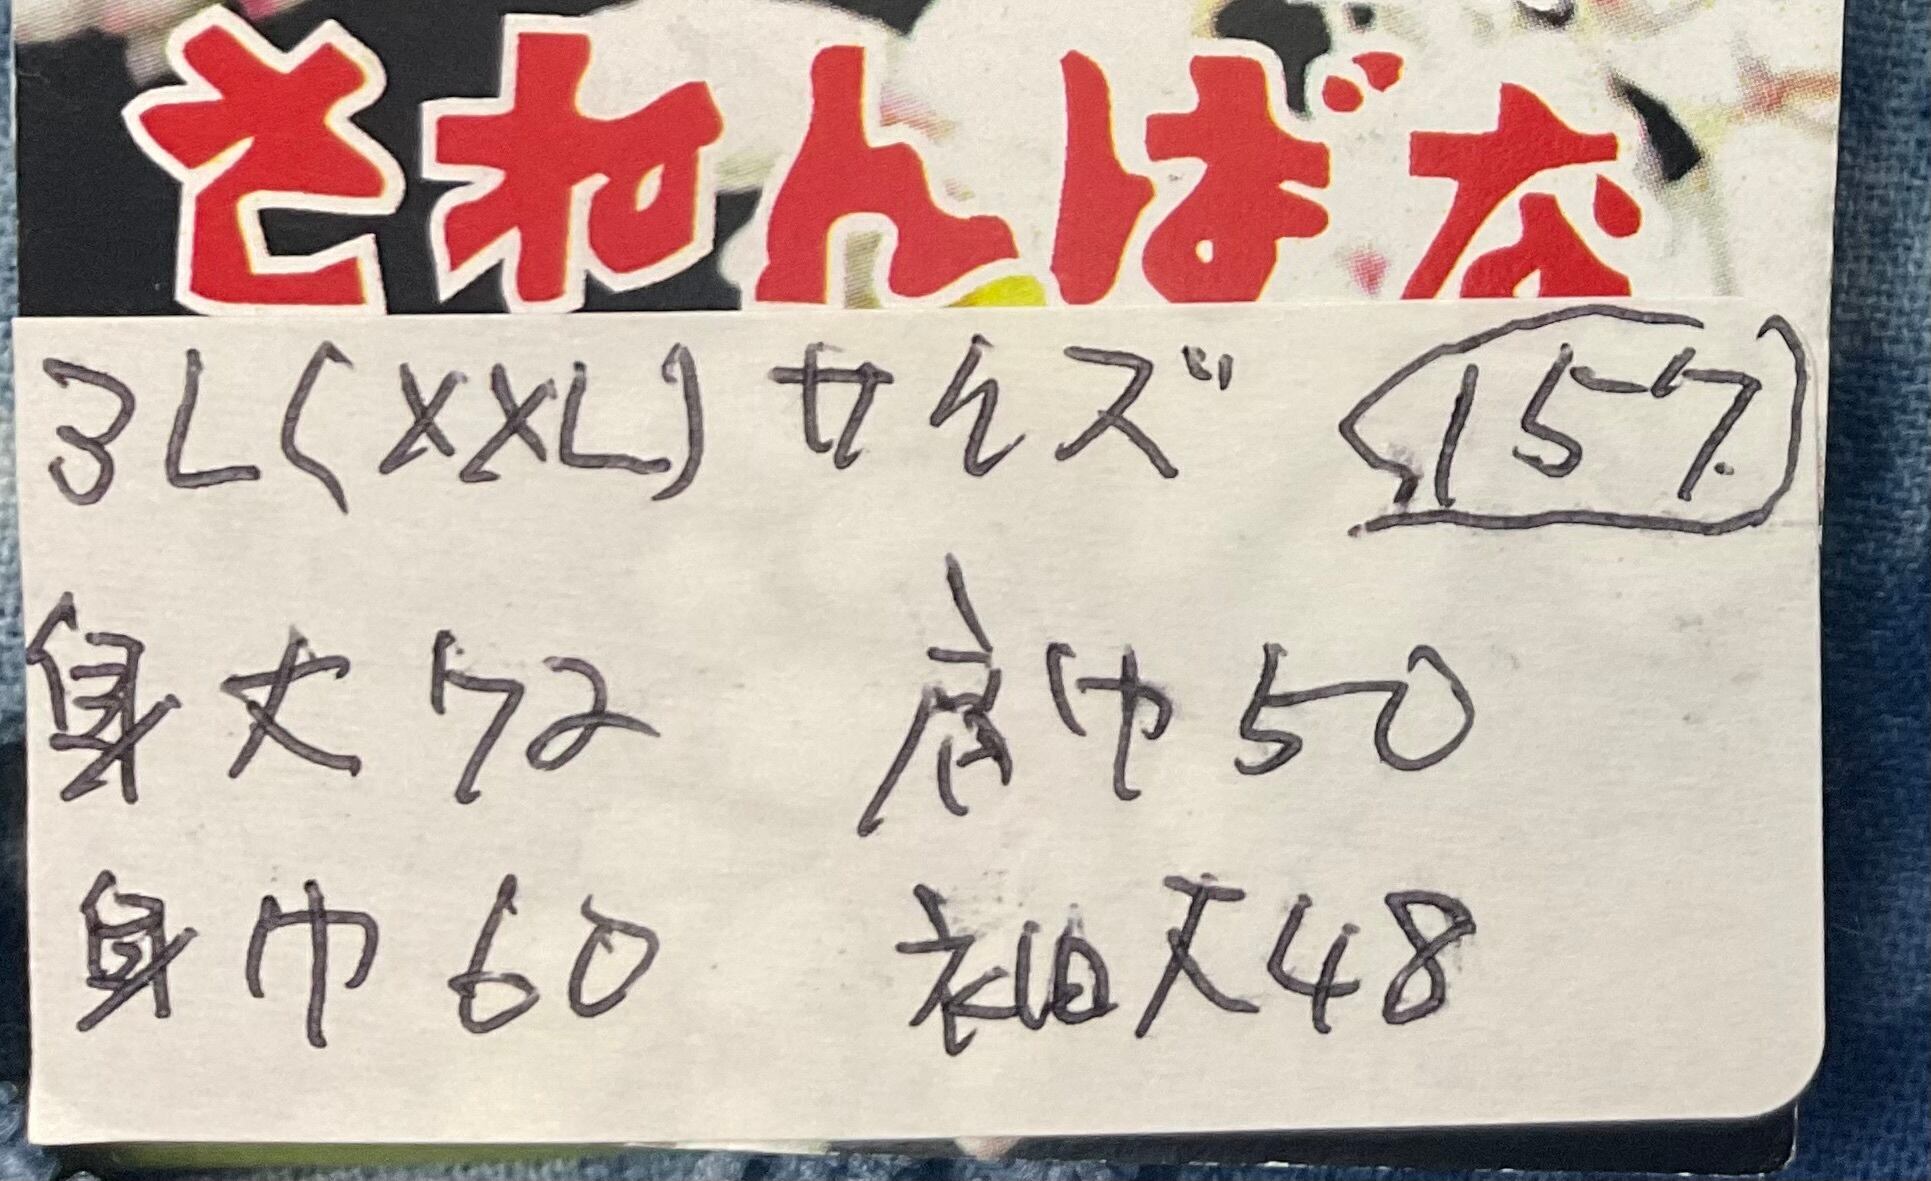 さわんばな
3L(XXL)サイズ 157.
身丈72 肩巾50
身巾60 袖丈48